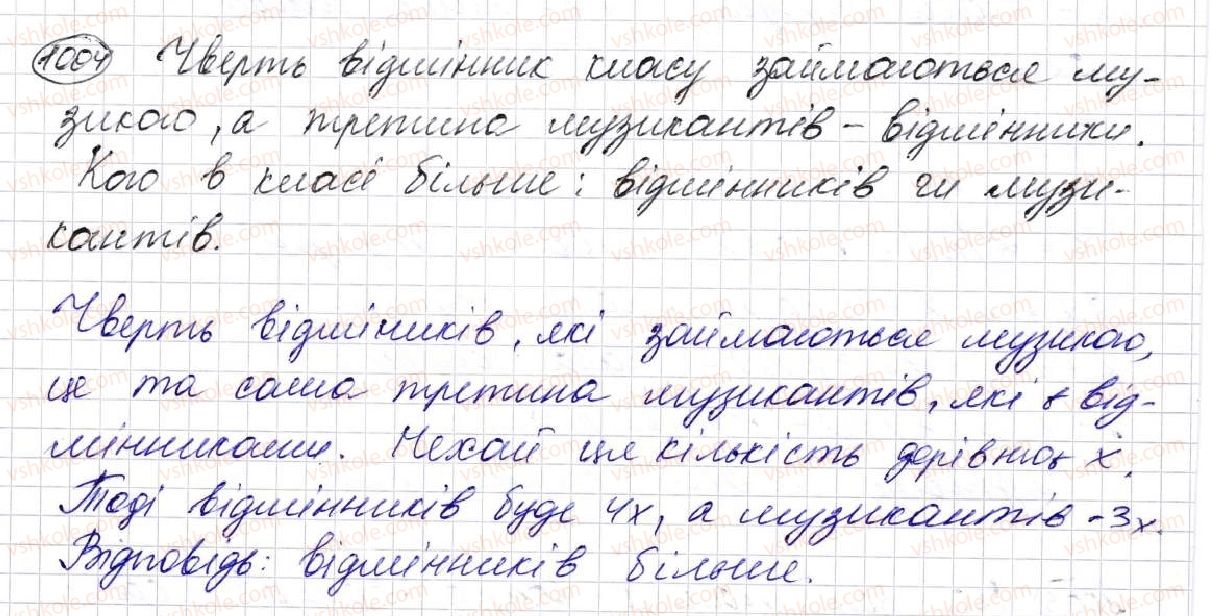 1004 Чверть відмінник класу займаються му-
зикою, а третина музикантів - відмінники.
Кого в класі більше: відмінників чи музи-
кантів.
Чверть відмініків, які займаються музикою,
це та сама третина музикантів, які є від-
мінниками. Нехай ця кількість дорівнює x.
Тоді відмінників буде 4x, а музикантів - 3x.
Відповідь: відмінників більше.